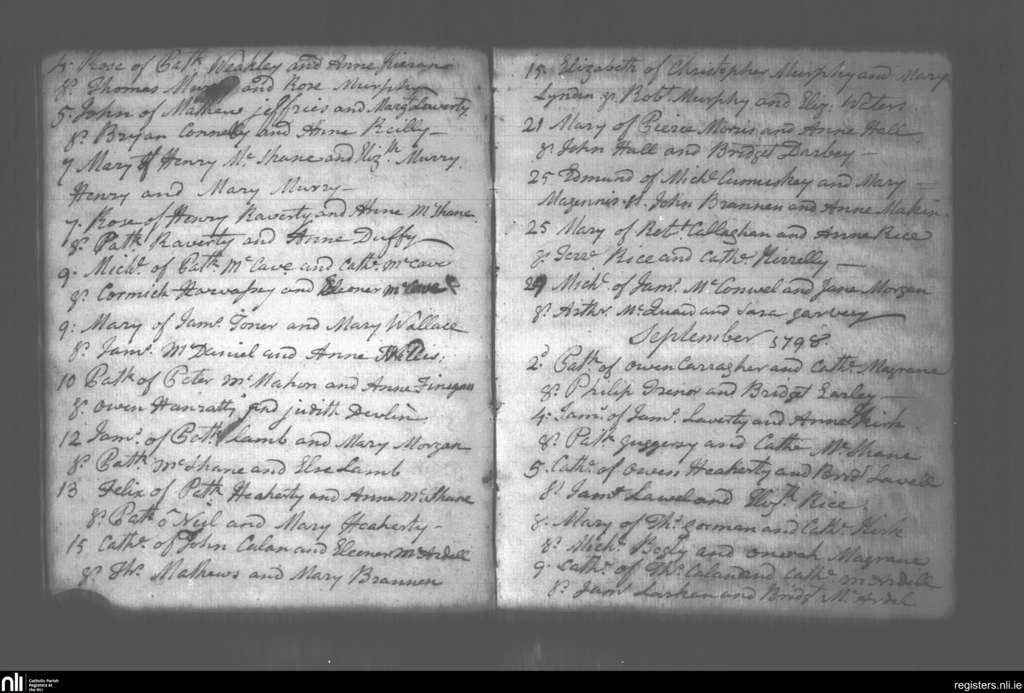 4. Rose of Patk. Weakley and Anne Kierans
Sp. Thomas and Rose Murphy
5. John of Mathew jeffries and Margt. Laverty.
Sp. Bryan Connelly and Anne Reilly—
7 Mary of Henry Mc Shane and Eliz.th Murry.
Henry and Mary Murry—
7. Rose of Henry Raverty and Anne McShane.
Sp. Patk. Raverty and Anne Duffy
9. Michl. of Patk. McCave and Cathe. McCave
Sp. Cormick and Eleoner McCave
9: Mary of Jams. Toner and Mary Wallace
Sp. Jams. McDaniel and Anne
10 Patk of Peter McMahon and Anne Finegan
Sp. Owen Hanratty and judith Devlin
12 Jams. of Patk. Lamb and Mary Morgan
Sp. Patk. McShane and Else Lamb
13 Felix of Patk Heaherty and Anne McShane
Sp. Patk o Neil and Mary Heaherty—
15 Cathe. of John Calan and Eleoner McArdell
Sp. Ths. Mathews and Mary Brannen
15. Elizabeth of Christopher Murphy and Mary
Lynden Sp. Robt. Murphy and Eliz. Waters.
21 Mary of Pierce Morris and Anne Hall
Sp. John Hall and Bridget Darbey—
25 Edmund of Michl. Cumuskey and Mary—
Magennis Sp. John Brannen and Anne Makin.
25 Mary of Robt. Callaghan and Anne Rice
Sp. Rice and Cathe.
29 Michl. of Jams. McConwel and Jane Morgan
Sp. Arthr. McQuaid and Sara garvey
September 1798.
2d Patk. of Owen Carragher and Cathe. Magrane
Sp. Philip Trenor and Bridget Earley—
4: Jams. of Jams. Laverty and Anne Kirk.
Sp. Patk. and Cathe McShane
5. Cathe. of Owen Heaherty and Bridt Lavell
Sp. Jams. Lawel and Elizth Rice
8. Mary of Ths. gorman and Cathe. Kirk
Sp. Michl. Begly and Magrane
9. Cathe. of Ths. Calan and Cathe. McArdell
Sp. Jams Larkan and Bridgt McArdel
nli
Catholic Parish
Registers at
the NLI
registers.nli.ie